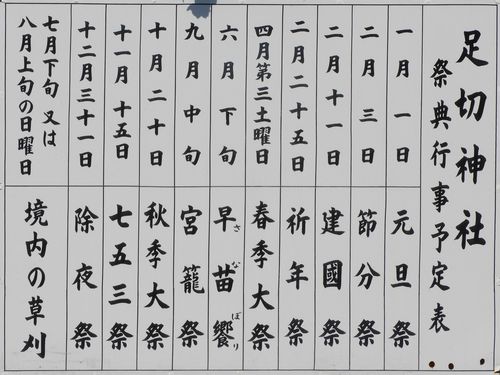 足切神社
祭典行事予定表
一月一日
元旦祭
二月三日
節分祭
二月十一日
建國祭
二月二十五日
祈年祭
四月第三土曜日
春季大祭
六月下旬
早苗饗
さなぼり
九月中旬
宮籠祭
十月二十日
秋季大祭
十一月十五日
七五三祭
十二月三十一日
除夜祭
七月下旬又は
八月上旬の日曜日
境内の草刈